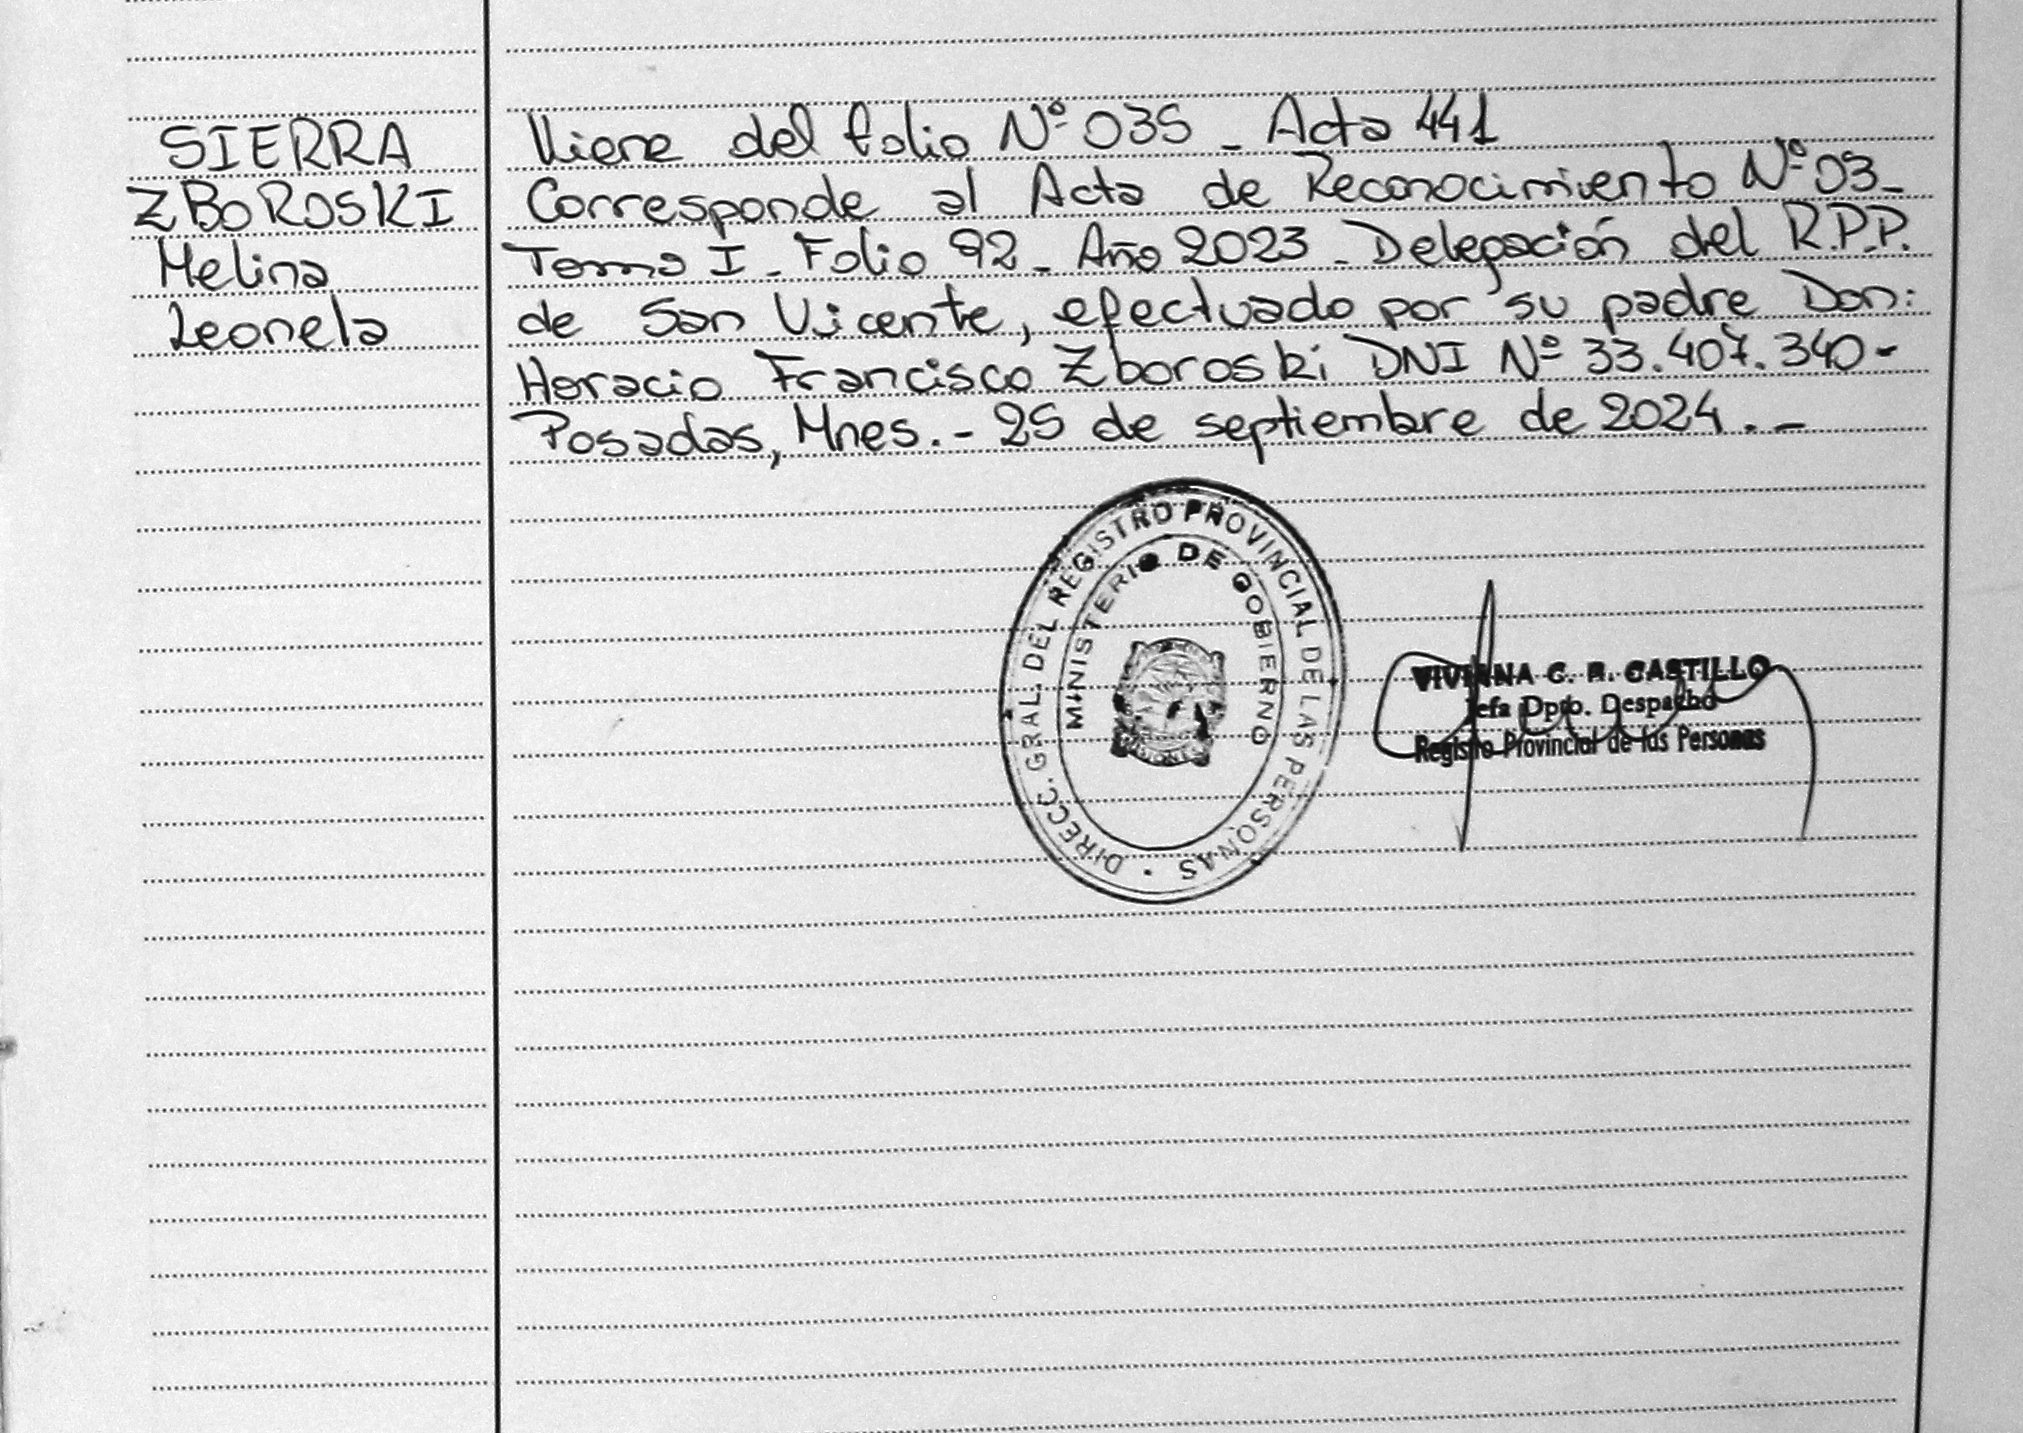 SIERRA
ZBOROSKI
Melina
Leonela
Viene del folio Nº 035 - Acta 441
Corresponde al Acta de Reconocimiento Nº 03-
Tomo I - Folio 92 - Año 2023 - Delegación del R.P.P.
de San Vicente, efectuado por su padre Don:
Horacio Francisco Zboroski DNI Nº 33.407.340-
Posadas, Mnes.- 25 de septiembre de 2024.-
DIRECC. GRAL. DEL REGISTRO PROVINCIAL DE LAS PERSONAS
MINISTERIO DE GOBIERNO
VIVIANA C. R. CASTILLO
Jefa Dpto. Despacho
Registro Provincial de las Personas